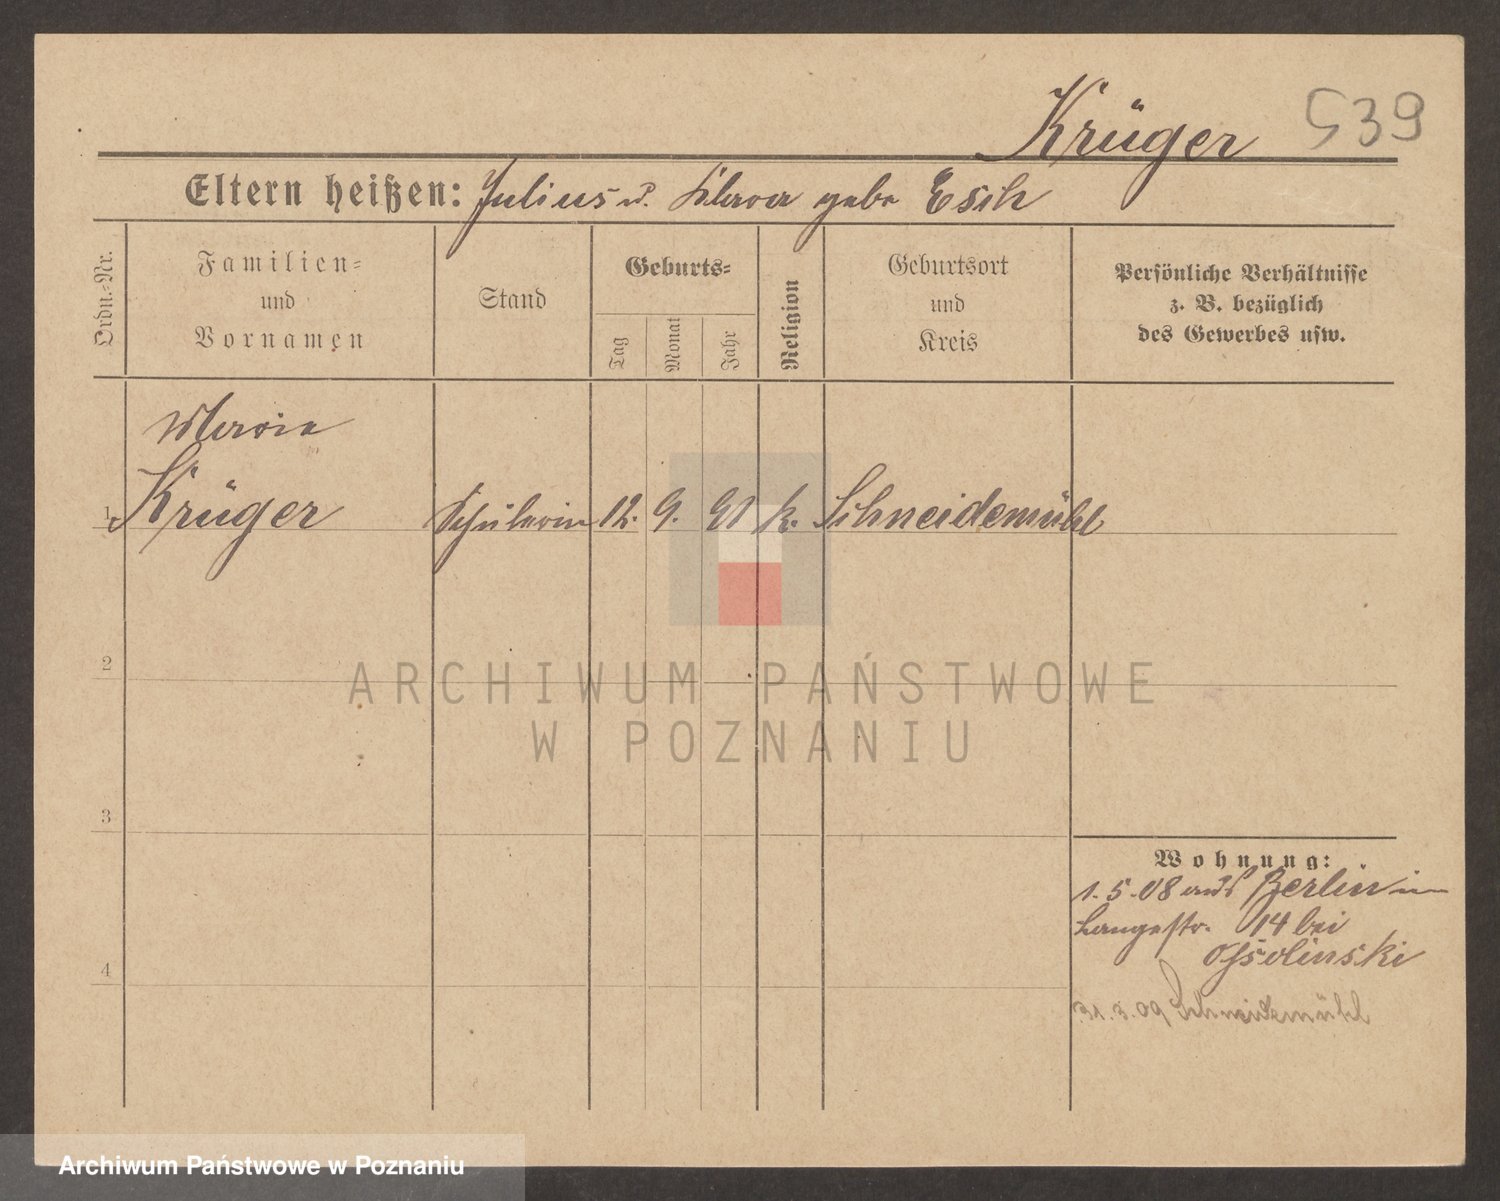 Krüger 539
Eltern heißen: Julius u. Klara geb. Esch
Ordn.-Nr.
Familien-
und
Vornamen
Stand
Geburts-
Tag
Monat
Jahr
Religion
Geburtsort
und
Kreis
Persönliche Verhältnisse
z. B. bezüglich
des Gewerbes usw.
Maria
1 Krüger Schülerin 12. 9. 91 k. Schneidemühl
2
3
4
Wohnung:
1.5.08 aus Berlin in
Langestr. 14 bei
Ossolinski
31.3.09 Schneidemühl
ARCHIWUM PAŃSTWOWE
W POZNANIU
Archiwum Państwowe w Poznaniu